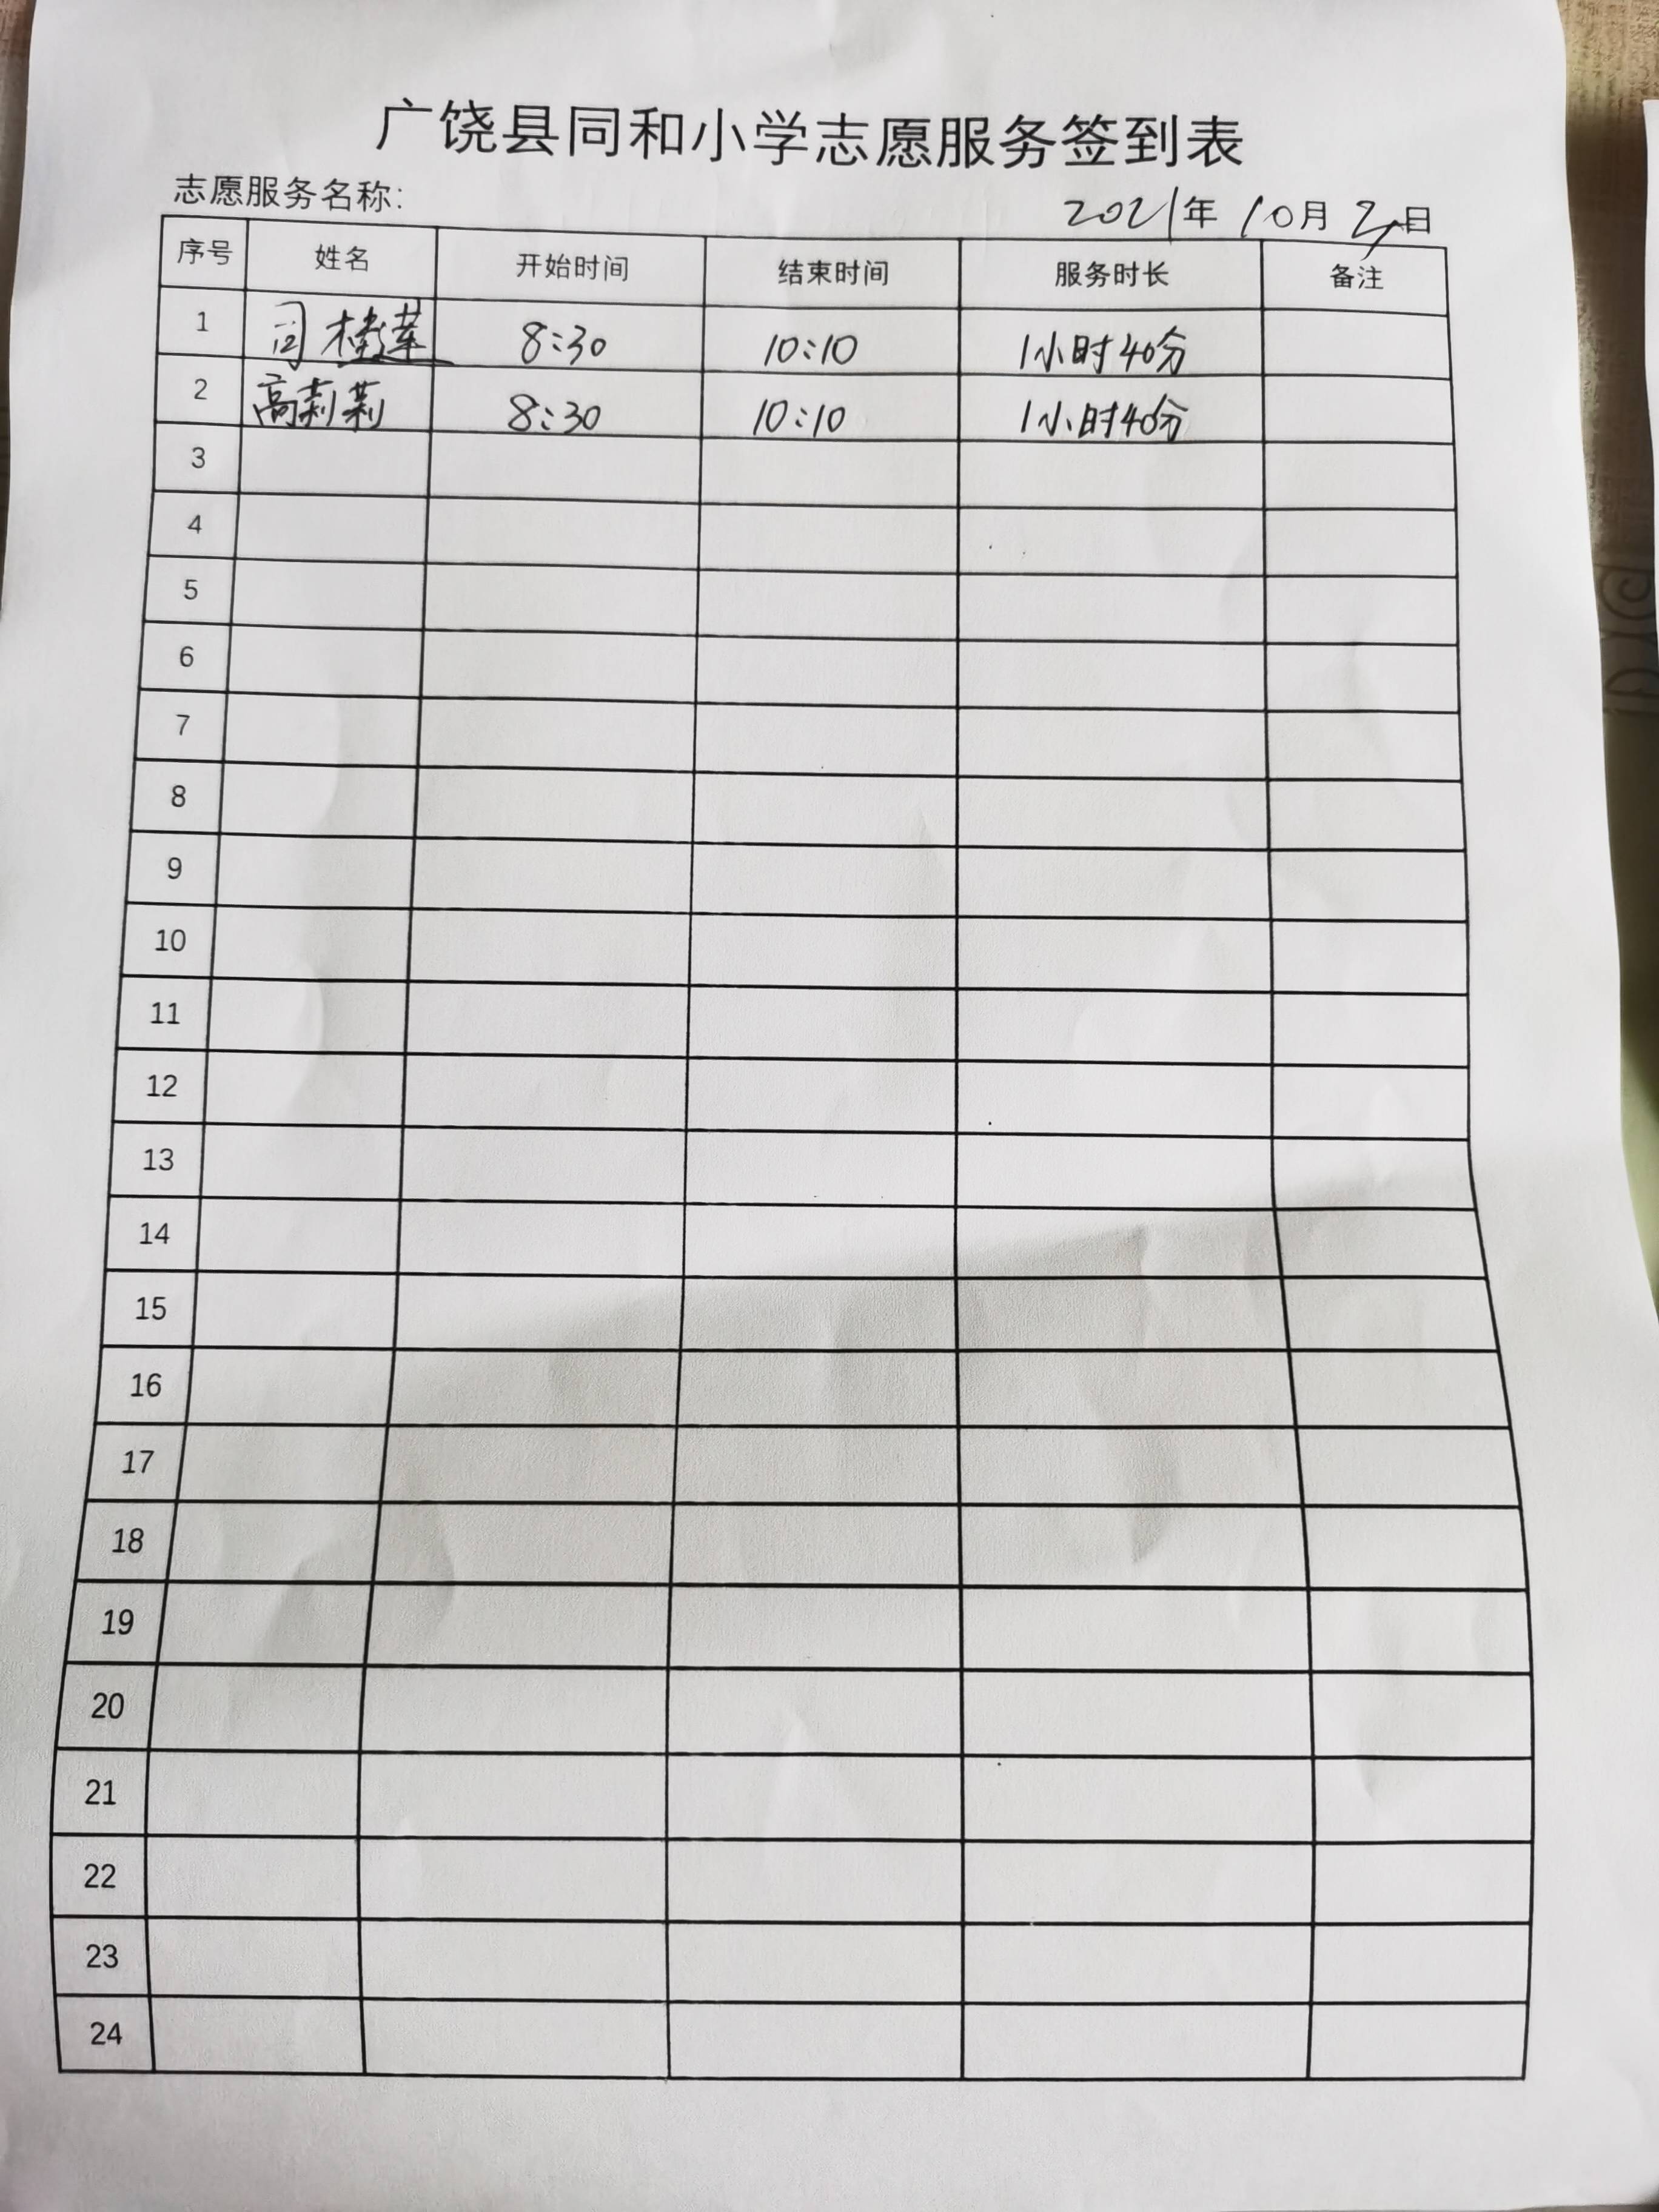 广饶县同和小学志愿服务签到表
志愿服务名称:
2021年 10月 日
序号 姓名 开始时间 结束时间 服务时长 备注
1 司桂莲 8:30 10:10 1小时40分
2 高莉莉 8:30 10:10 1小时40分
3
4
5
6
7
8
9
10
11
12
13
14
15
16
17
18
19
20
21
22
23
24